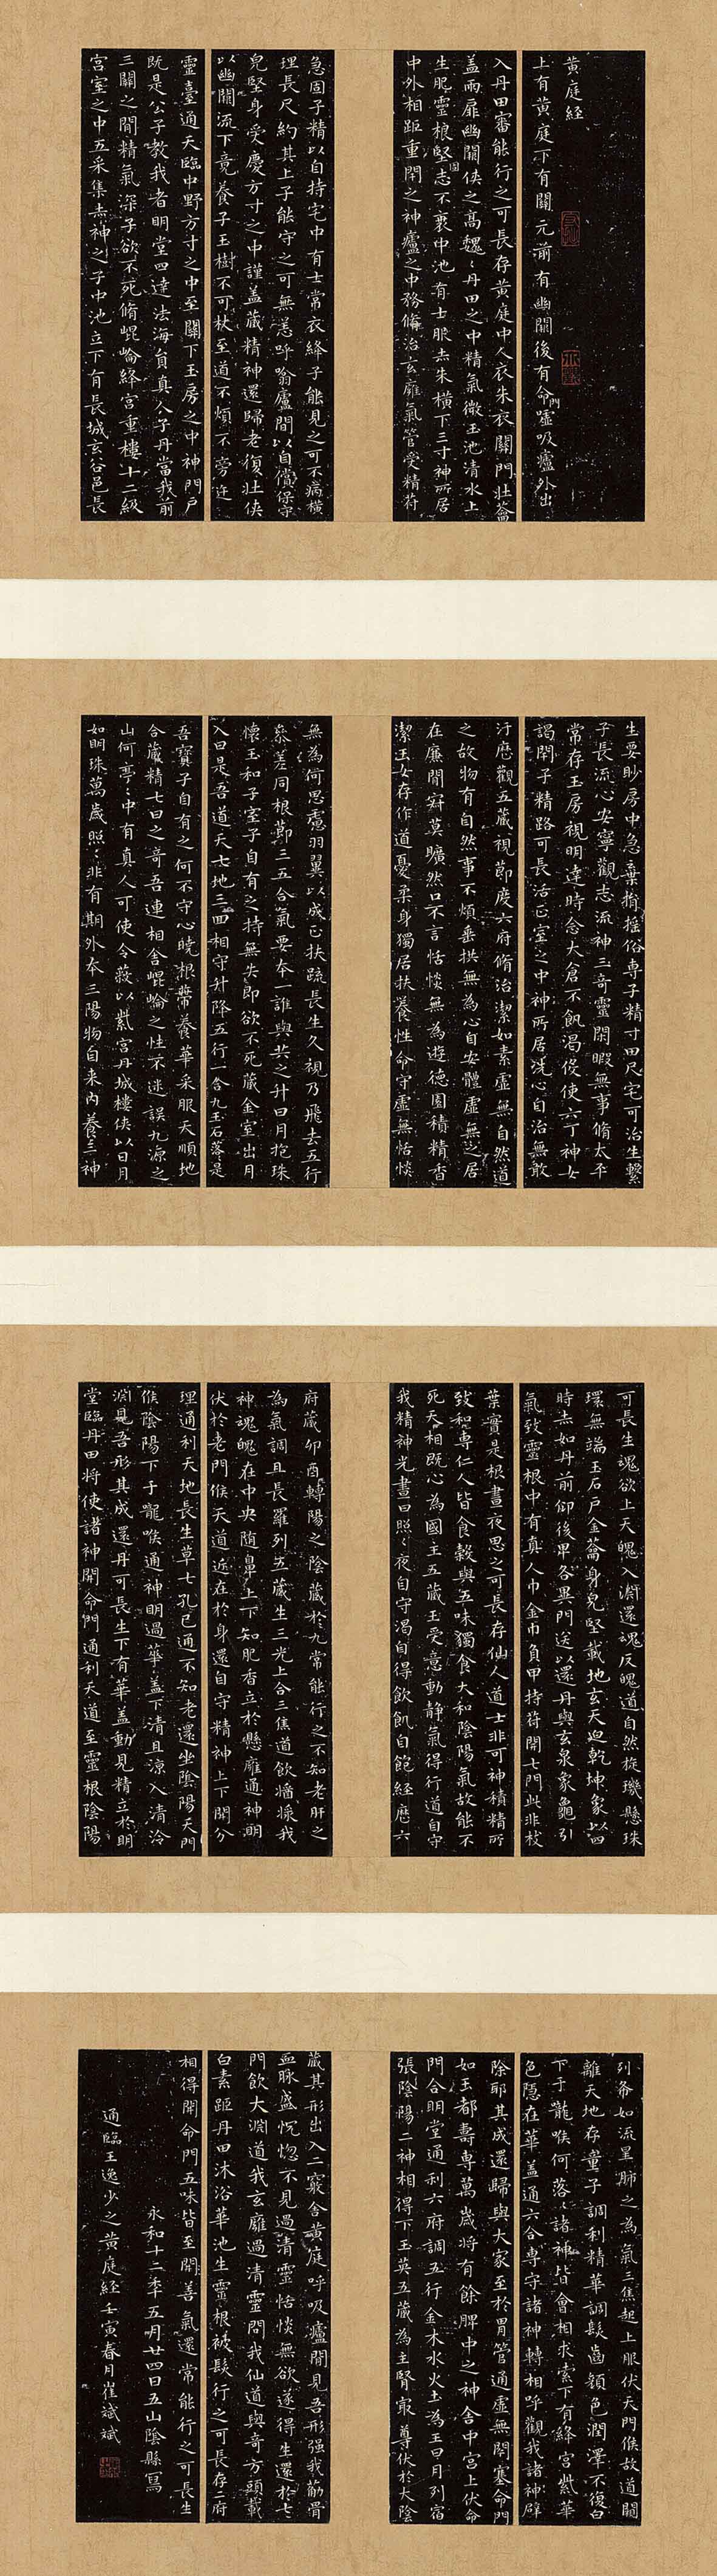 黄庭経
上有黄庭下有關元前有幽關後有命門噓吸廬外出
入丹田審能行之可長存黄庭中人衣朱衣關門壯蘥
盖兩扉幽關俠之髙魏〻丹田之中精氣微玉池清水上
生肥靈根堅固志不衰中池有士服赤朱横下三寸神所居
中外相距重閇之神廬之中務脩治玄廱氣管受精符
急固子精以自持宅中有士常衣絳子能見之可不病横
理長尺約其上子能守之可無恙呼噏廬間以自償保守
皃堅身受慶方寸之中謹盖藏精神還歸老復壯俠
以幽關流下竟養子玉樹不可杖至道不煩不旁迕
靈臺通天臨中野方寸之中至關下玉房之中神門戶
既是公子教我者明堂四達法海員真人子丹當我前
三關之間精氣深子欲不死脩崐崘絳宮重樓十二級
宮室之中五采集赤神之子中池立下有長城玄谷邑長
生要眇房中急棄捐摇俗専子精寸田尺宅可治生繫
子長流心安寧觀志流神三奇靈閑暇無事脩太平
常存玉房視明達時念大倉不飢渴伇使六丁神女
謁閇子精路可長活正室之中神所居洗心自治無敢
汙歴觀五藏視節度六府脩治潔如素虛無自然道
之故物有自然事不煩垂拱無為心自安體虛無之居
在廉間寂莫曠然口不言恬惔無為遊德園積精香
潔玉女存作道憂柔身獨居扶養性命守虛無恬惔
無為何思慮羽翼以成正扶疏長生久視乃飛去五行
叅差同根蔕三五合氣要本一誰與共之升日月抱珠
懷玉和子室子自有之持無失即欲不死藏金室出月
入日是吾道天七地三回相守升降五行一合九玉石落〻是
吾寶子自有之何不守心曉根蔕養華采服天順地
合藏精七日之奇吾連相舎崐崘之性不迷誤九源之
山何亭〻中有真人可使令蔽以紫宮丹城樓俠以日月
如明珠萬歲照〻非有期外本三陽物自来内養三神
可長生魂欲上天魄入淵還魂反魄道自然㨂璣懸珠
環無端玉石戶金蘥身皃堅載地玄天迫乾坤象以四
時赤如丹前仰後卑各異門送以還丹與玄泉象龜引
氣致靈根中有真人巾金巾負甲持苻開七門此非枝
葉實是根晝夜思之可長存仙人道士非可神積精所
致和専仁人皆食穀與五味獨食大和陰陽氣故能不
死天相既心為國主五藏王受意動静氣得行道自守
我精神光晝日照〻夜自守渴自得飲飢自飽経歴六
府藏卯酉轉陽之陰藏於九常能行之不知老肝之
為氣調且長羅列五藏生三光上合三焦道飲醬漿我
神魂魄在中央随鼻上下知肥香立於懸廱通神明
伏於老門候天道近在於身還自守精神上下開分
理通利天地長生草七孔已通不知老還坐陰陽天門
候陰陽下于嚨喉通神明過華盖下清且涼入清泠
淵見吾形其成還丹可長生下有華盖動見精立於明
堂臨丹田将使諸神開命門通利天道至靈根陰陽
列布如流星肺之為氣三焦起上服伏天門候故道闚
離天地存童子調利精華調髮齒顔色潤澤不復白
下于嚨喉何落〻諸神皆會相求索下有絳宮紫華
色隱在華盖通六合専守諸神轉相呼觀我諸神辟
除耶其成還歸與大家至於胃管通虛無閇塞命門
如玉都壽専萬歲将有餘脾中之神舎中宮上伏命
門合明堂通利六府調五行金木水火土為王日月列宿
張陰陽二神相得下玉英五藏為主腎㝡尊伏於大陰
藏其形出入二竅舎黄庭呼吸廬間見吾形强我筋骨
血脉盛怳惚不見過清靈恬惔無欲遂得生還於七
門飲大淵道我玄廱過清靈問我仙道與奇方頭載
白素距丹田沐浴華池生靈根被髮行之可長存二府
相得開命門五味皆至開善氣還常能行之可長生
永和十二年五月廿四日五山陰縣寫
通臨王逸少之黄庭経壬寅春月崔斌斌